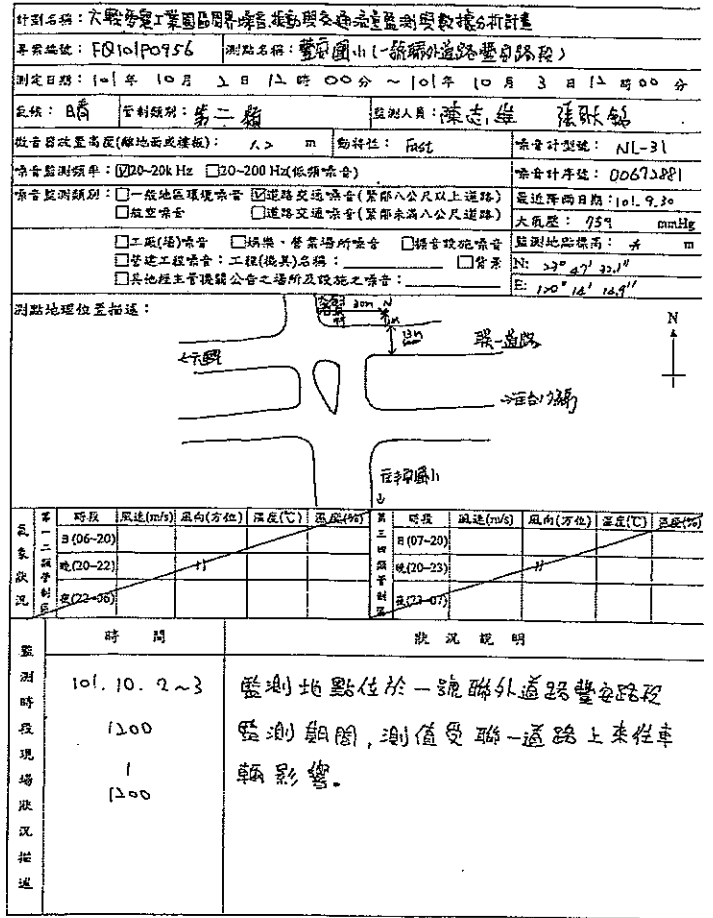 計劃名稱：六輕麥寮工業園區周界噪音、振動與交通流量監測與數據分析計畫
專案編號：FQ101P0956 測點名稱：豐安國小(一號聯外道路豐安路段)
測定日期：101年 10月 2日 12時 00分 ～101年 10月 3日 12時 00分
氣候：晴 管制類別：第二類 監測人員：陳志維
微音器放置高度(離地面或樓板)： 1.2 m 動特性：Fast 噪音計型號：NL-31
噪音監測頻率：☑20~20k Hz □20~200 Hz(低頻噪音) 噪音計序號：00672881
噪音監測類別：□一般地區環境噪音 ☑道路交通噪音(緊鄰八公尺以上道路) 最近降雨日期：101.9.30
□航空噪音 □道路交通噪音(緊鄰未滿八公尺道路) 大氣壓：759 mmHg
□工廠(場)噪音 □娛樂、營業場所噪音 □擴音設施噪音 監測地點標高： m
□營建工程噪音：工程(機具)名稱： □背景 N: 23° 47' 32.1"
□其他經主管機關公告之場所及設施之噪音： E: 120° 14' 14.9"
測點地理位置描述：
30m N
13m
聯一道路
N
六輕
氣象狀況
第一二類管制區 時段 風速(m/s) 風向(方位) 溫度(℃) 濕度(%) 第三四類管制區 時段 風速(m/s) 風向(方位) 溫度(℃) 濕度(%)
日(06~20) 日(07~20)
晚(20~22) 晚(20~23)
夜(22~06) 夜(23~07)
監測時段現場狀況描述
時間 狀況說明
101.10.2~3 監測地點位於一號聯外道路豐安路段
1200 監測期間，測值受聯一道路上來往車
|
1200 輛影響。